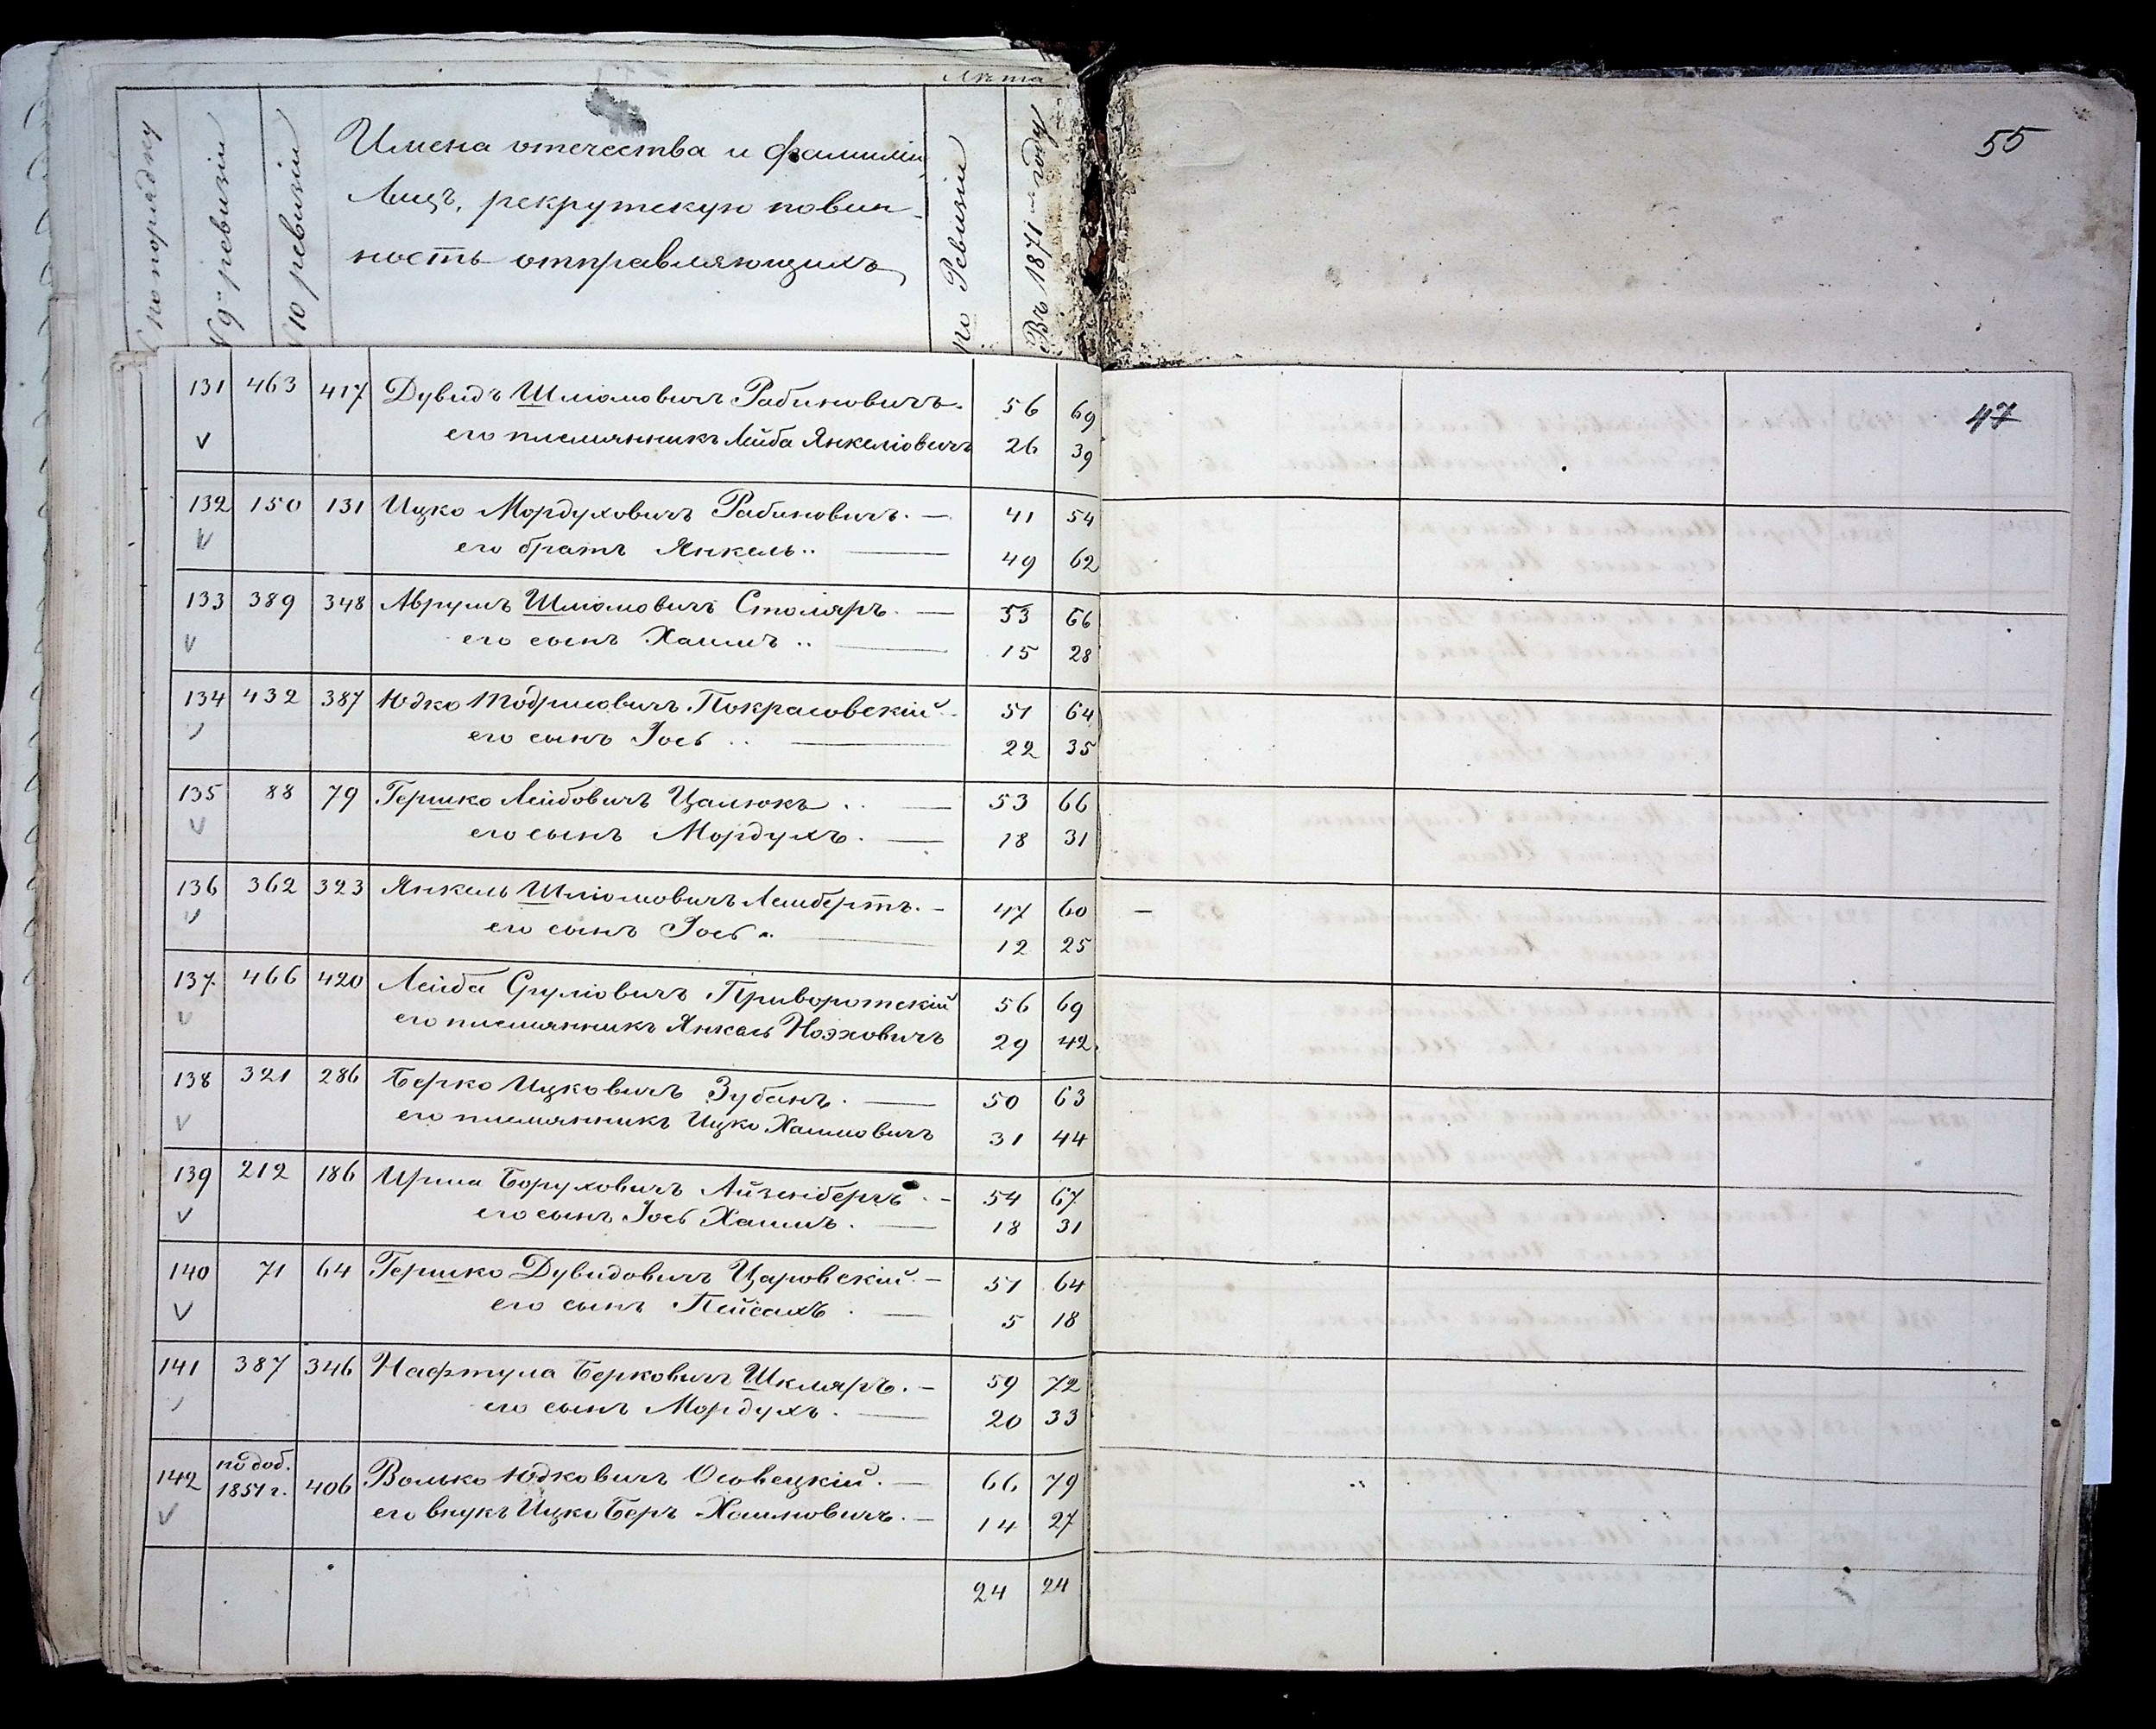 Лѣта
№ по порядку
№ 9й ревизіи
№ 10 ревизіи
Имена отечества и фамиліи
Лицъ, рекрутскую повин-
ность отправляющихъ
по Ревизіи
Въ 1871 м году
55
47
131 463 417 Дувидъ Шліомовичъ Рабиновичъ. 56 69
его племянникъ Лейба Янкеліовичъ 26 39
132 150 131 Ицко Мордуховичъ Рабиновичъ. — 41 54
его братъ Янкель.. — 49 62
133 389 348 Аврумъ Шліомовичъ Столяръ. — 53 66
его сынъ Хаимъ .. — 15 28
134 432 387 Юдко Тодрисовичъ Покрасовскій.. 51 64
его сынъ Іось .. — 22 35
135 88 79 Гершко Лейбовичъ Цалюкъ .. — 53 66
его сынъ Мордухъ. — 18 31
136 362 323 Янкель Шліомовичъ Лемберть. – 47 60 –
его сынъ Іось .. — 12 25
137. 466 420 Лейба Сруліовичъ Приворотскій 56 69
его племянникъ Янкель Ноэховичъ 29 42.
138 321 286 Берко Ицковичъ Зубанъ. — 50 63
его племянникъ Ицко Хаимовичъ 31 44
139 212 186 Боруховичъ Айзенбергъ . – 54 67
его сынъ Іось Хаимъ. — 18 31
140 71 64 Гершко Дувидовичъ Царовскій. – 51 64
его сынъ Пейсахъ . — 5 18
141 387 346 Нафтула Берковичъ Шкляръ. – 59 72
его сынъ Мордухъ. — 20 33
142 по доб. 1851 г. 406 Волько Юдковичъ Осовецкій. — 66 79
его внукъ Ицко Беръ Хаимовичъ. – 14 27
24 24